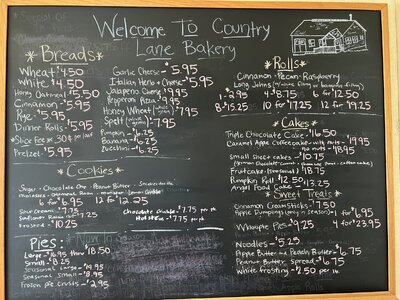 Welcome To Country
Lane Bakery
*Breads*
Wheat $4.50
White $4.50
Honey Oatmeal $5.50
Cinnamon $5.95
Rye $5.95
Dinner Rolls $5.95
*Slice Fee is 30¢ per loaf
Pretzel $5.95
Garlic Cheese $5.95
Italian Herb + Cheese $5.95
Jalapeno Cheese
Pepperoni Pizza
Honey Wheat
Spelt $7.95
Pumpkin $6.25
Banana $6.25
Zucchini $6.25
*Cookies*
Sugar - Chocolate Chip - Peanut Butter
6 for $6.95 12 for $12.25
Sour Cream $7.75
Frosted $10.25
Chocolate Chunk $7.75 per pk
$7.75 per pk
Pies:
Large $16.95 thru $18.50
Small $8.25
Seasonal Large $19.95
Seasonal Small $8.95
Frozen Pie Crusts $2.95
*Rolls*
Cinnamon - Pecan - Raspberry
Long Johns
1 - 2.95 4 - $8.75 6 for $12.50
8 - $15.25 10 for $17.25 12 for $19.25
*Cakes*
Triple Chocolate Cake $16.50
Caramel Apple Coffeecake with nuts $19.95
no nuts $18.95
Small sheet cakes $10.75
Fruitcake $18.75
Pumpkin Roll $12.50
Angel Food Cake $13.25
*Sweet Treats*
Cinnamon Cream Sticks $7.50
Apple Dumplings (only in season) 1 for $6.95
Whoopie Pies $9.25 4 for $23.95
Noodles $5.25
Apple Butter and Peach Butter $6.75
Peanut Butter Spread $6.75
White frosting $2.50 per lb.